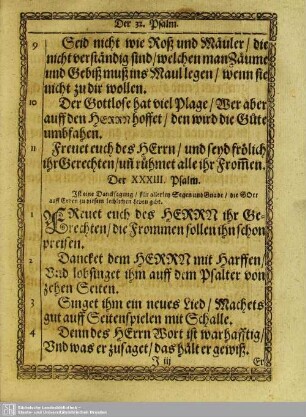 Der 32. Psalm.
9 Seid nicht wie Roß und Mäuler / die
nicht verständig sind / welchen man Zäume
und Gebiß muß ins Maul legen / wenn sie
nicht zu dir wollen.
10 Der Gottlose hat viel Plage / Wer aber
auff den HERRN hoffet / den wird die Güte
umbfahen.
11 Freuet euch des HErrn / und seyd frölich
ihr Gerechten / uñ rühmet alle ihr From̃en.
Der XXXIII. Psalm.
Ist eine Dancksagung / für allerley Segen und Gnade / die GOtt
auff Erden in diesem
1 FReuet euch des HERRN ihr Ge-
rechten / die Frommen sollen ihn schon
preisen.
2 Dancket dem HERRN mit Harffen /
Vnd lobsinget ihm auff dem Psalter von
zehen Seiten.
3 Singet ihm ein neues Lied / Machets
gut auff Seitenspielen mit Schalle.
4 Denn des HErrn Wort ist warhafftig /
Vnd was er zusaget / das hält er gewiß.
J iij Er